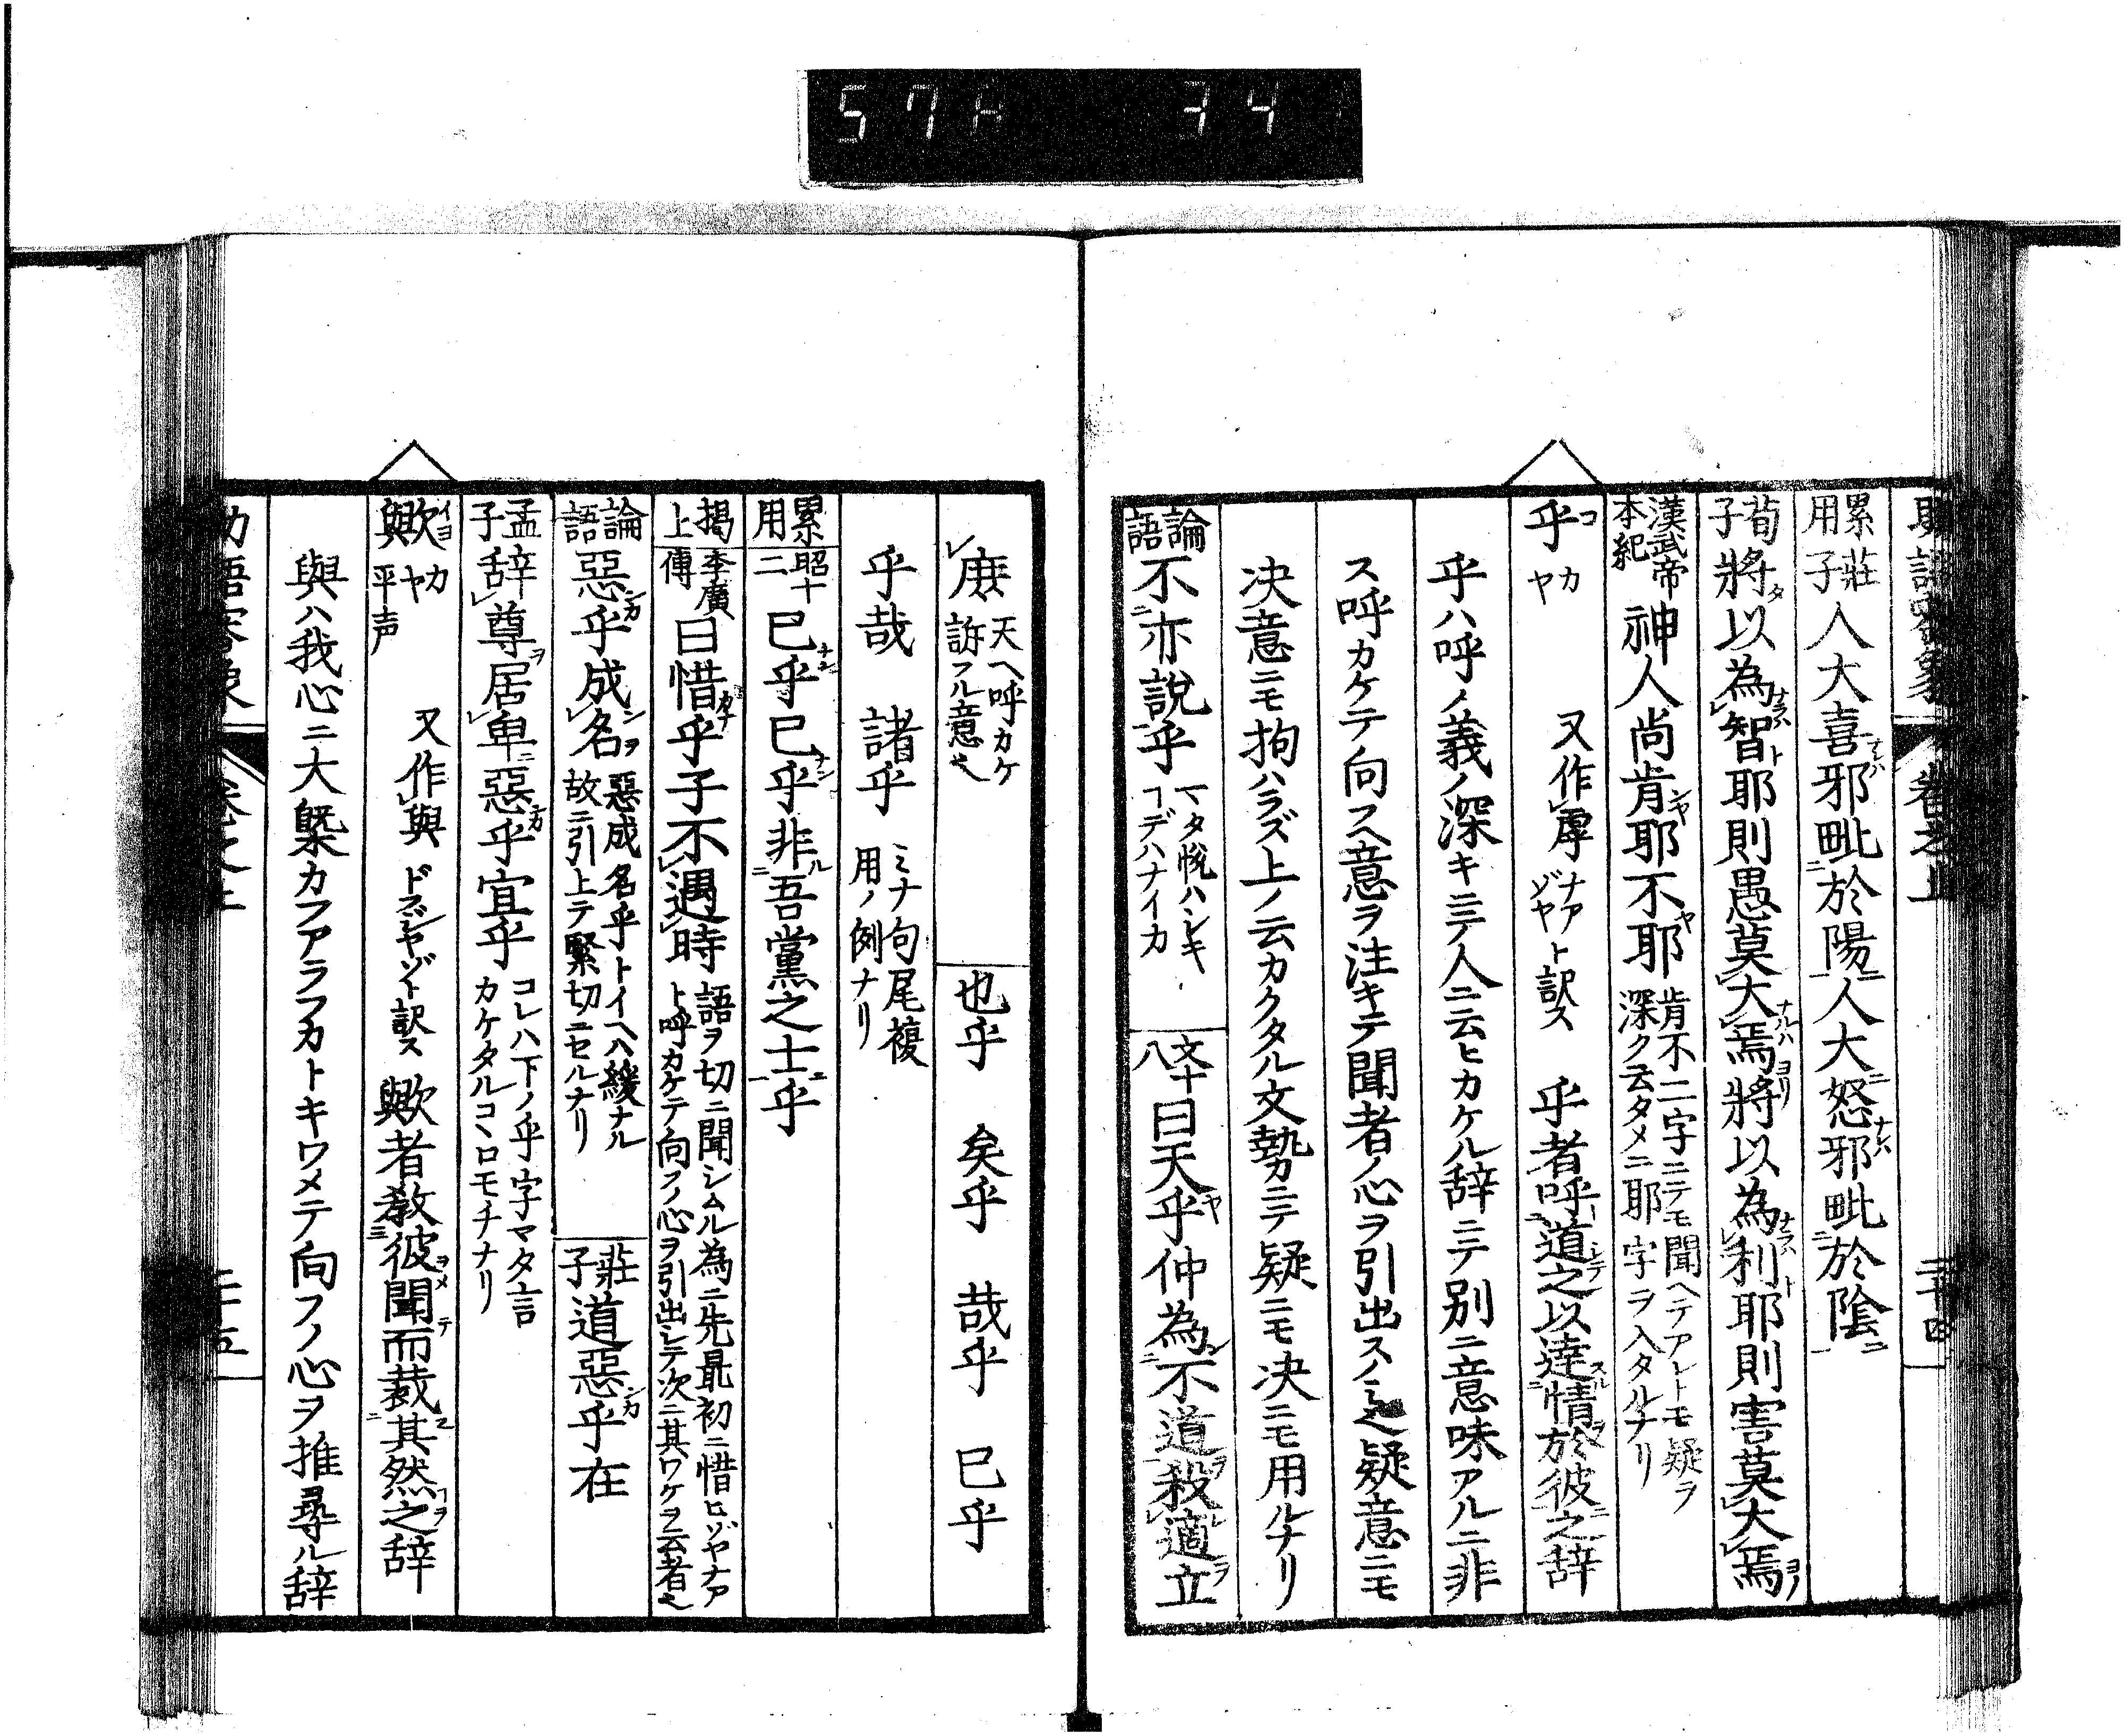 累用 莊子 人大喜邪毗於陽人大怒邪毗於陰
荀子 將以為智耶則愚莫大焉將以為利耶則害莫大焉
漢武帝本紀 神人尚肯耶不耶 肯不二字ニテモ聞ヘテアレトモ疑ヲ深ク云タメニ耶字ヲ入タルナリ
乎 コ カヤ 又作虖 ナアゾヤト訳ス 乎者呼道之以達情於彼之辞
乎ハ呼ノ義ノ深キニテ人ニ云ヒカケル辞ニテ別ニ意味アルニ非
ス呼カケテ向フヘ意ヲ注キテ聞者ノ心ヲ引出スノミ也疑意ニモ
决意ニモ拘ハラズ上ノ云カクタル文勢ニテ疑ニモ决ニモ用ルナリ
論語 不亦説乎 マタ悅ハシキコデハナイカ 文十八 曰天乎仲為不道殺適立
庶 天ヘ呼カケ訴フル意也 也乎 矣乎 哉乎 已乎
乎哉 諸乎 ミナ句尾複用ノ例ナリ
累用 昭十二 已乎已乎非吾黨之士乎
揭上 李廣傳 曰惜乎子不遇時 語ヲ切ニ聞シムル為ニ先最初ニ惜ヒゾヤナアト呼カケテ向フノ心ヲ引出シテ次ニ其ワケヲ云者也
論語 惡乎成名 惡成名乎トイヘハ緩ナル故ニ引上テ緊切ニセルナリ 莊子 道惡乎在
孟子 辞尊居卑惡乎宜乎 コレハ下ノ乎字マタ言カケタルコヽロモチナリ
歟 イヨ カヤ 平声 又作與 ドヲジヤゾト訳ス 歟者教彼聞而裁其然之辞
與ハ我心ニ大槩カフアラフカトキワメテ向フノ心ヲ推尋ル辞